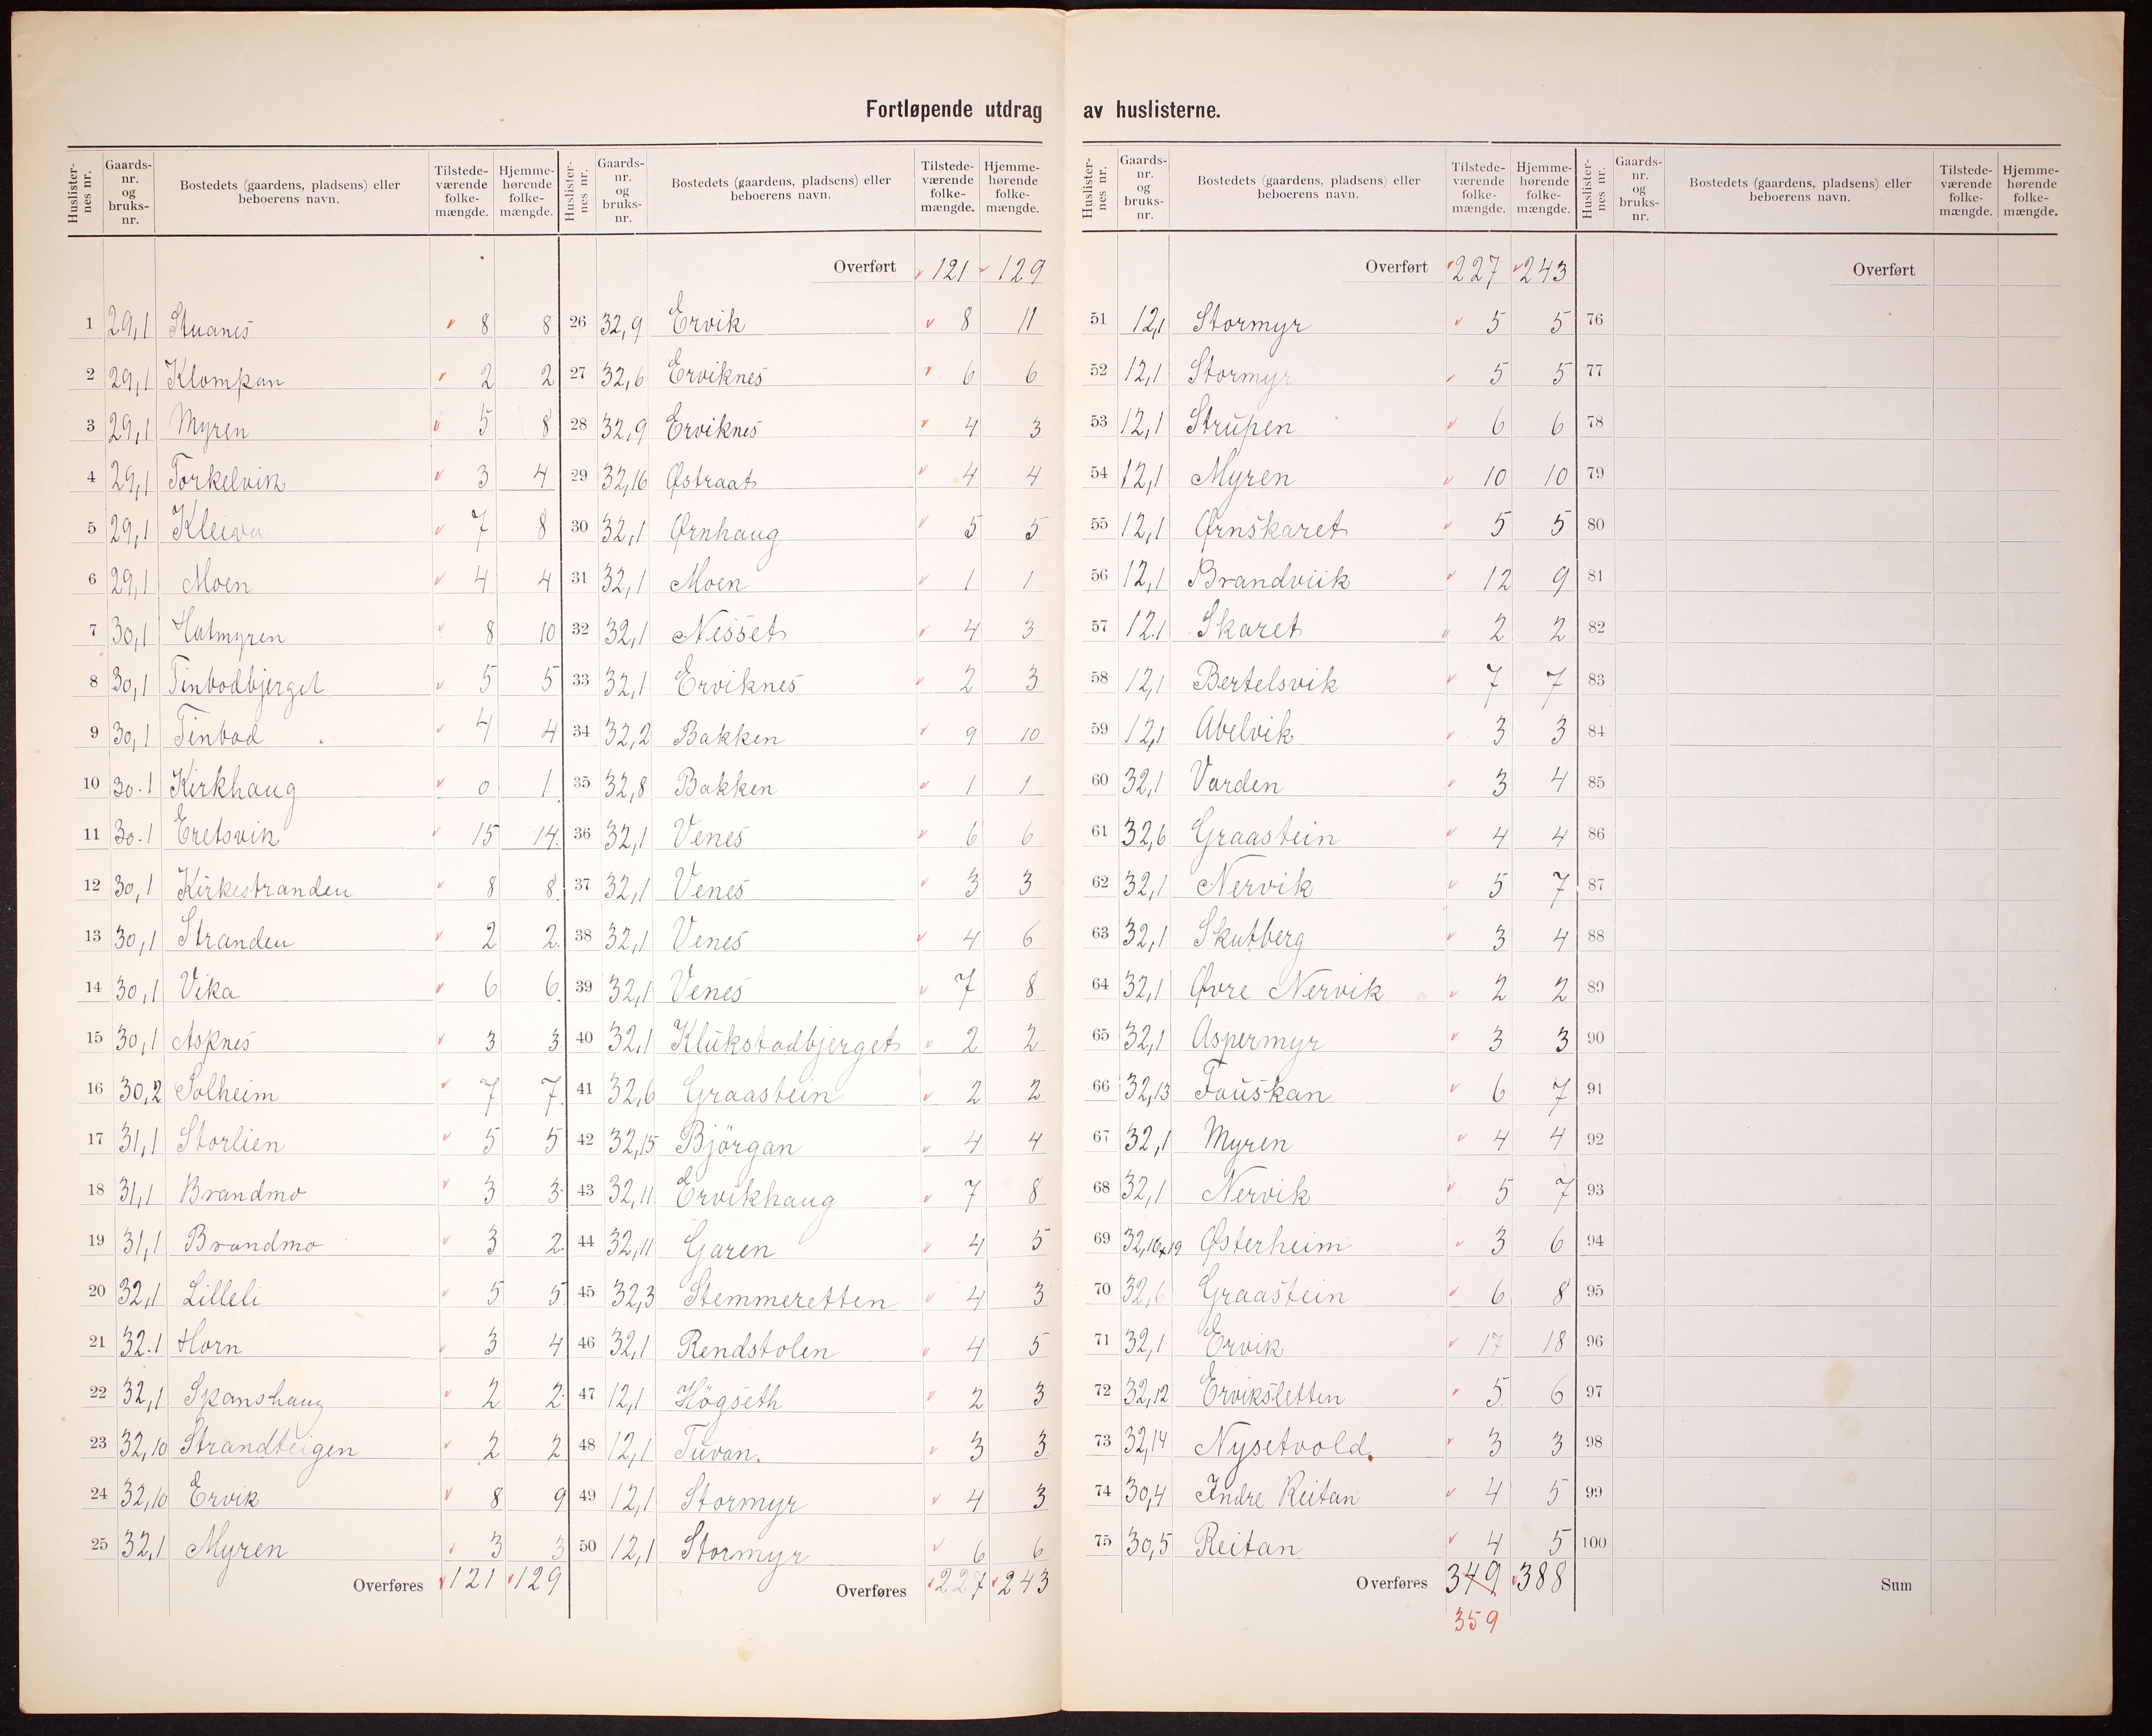 Fortløpende utdrag av huslisterne.
Huslister-nes nr. Gaards-nr. og bruks-nr. Bostedets (gaardens, pladsens) eller beboerens navn. Tilstede-værende folke-mængde. Hjemme-hørende folke-mængde.
1 29,1 Stuanes 8 8
2 29,1 Klompan 2 2
3 29,1 Myren 5 8
4 29,1 Torkelvik 3 4
5 29,1 Kleiva 7 8
6 29,1 Moen 4 4
7 30,1 Hatmyren 8 10
8 30,1 Tinbodbjerget 5 5
9 30,1 Tinbod 4 4
10 30.1 Kirkhaug 0 1
11 30.1 Eretsvik 15 14
12 30,1 Kirkestranden 8 8
13 30,1 Stranden 2 2
14 30,1 Vika 6 6
15 30,1 Aspnes 3 3
16 30,2 Solheim 7 7
17 31,1 Storlien 5 5
18 31,1 Brandmo 3 3
19 31,1 Brandmo 3 2
20 32,1 Lilleli 5 5
21 32.1 Horn 3 4
22 32,1 Spanshaug 2 2
23 32,10 Strandteigen 2 2
24 32,10 Ervik 8 9
25 32,1 Myren 3 3
Overføres 121 129
Huslister-nes nr. Gaards-nr. og bruks-nr. Bostedets (gaardens, pladsens) eller beboerens navn. Tilstede-værende folke-mængde. Hjemme-hørende folke-mængde.
Overført 121 129
26 32,9 Ervik 8 11
27 32,6 Erviknes 6 6
28 32,9 Erviknes 4 3
29 32,16 Østraat 4 4
30 32,1 Ørnhaug 5 5
31 32,1 Moen 1 1
32 32,1 Nesset 4 3
33 32,1 Erviknes 2 3
34 32,2 Bakken 9 10
35 32,8 Bakken 1 1
36 32,1 Venes 6 6
37 32,1 Venes 3 3
38 32,1 Venes 4 6
39 32,1 Venes 7 8
40 32,1 Klukstadbjerget 2 2
41 32,6 Graastein 2 2
42 32,15 Björgan 4 4
43 32,11 Ervikhaug 7 8
44 32,11 Garen 4 5
45 32,3 Stemmeretten 4 3
46 32,1 Rendstolen 4 5
47 12,1 Högseth 2 3
48 12,1 Tuvan. 3 3
49 12,1 Stormyr 4 3
50 12,1 Stormyr 6 6
Overføres 227 243
Huslister-nes nr. Gaards-nr. og bruks-nr. Bostedets (gaardens, pladsens) eller beboerens navn. Tilstede-værende folke-mængde. Hjemme-hørende folke-mængde.
Overført 227 243
51 12,1 Stormyr 5 5
52 12,1 Stormyr 5 5
53 12,1 Strupen 6 6
54 12,1 Myren 10 10
55 12,1 Ørnskaret 5 5
56 12,1 Brandviik 12 9
57 12.1 Skaret 2 2
58 12,1 Bertelsvik 7 7
59 12,1 Abelvik 3 3
60 32,1 Varden 3 4
61 32,6 Graastein 4 4
62 32,1 Nervik 5 7
63 32,1 Skutberg 3 4
64 32,1 Øvre Nervik 2 2
65 32,1 Aspermyr 3 3
66 32,13 Fauskan 6 7
67 32,1 Myren 4 4
68 32,1 Nervik 5 7
69 32,16+19 Østerheim 3 6
70 32,6 Graastein 6 8
71 32,1 Ervik 17 18
72 32,12 Erviksletten 5 6
73 32,14 Nysetvold. 3 3
74 30,4 Indre Reitan 4 5
75 30,5 Reitan 4 5
Overføres 349 388
359
Huslister-nes nr. Gaards-nr. og bruks-nr. Bostedets (gaardens, pladsens) eller beboerens navn. Tilstede-værende folke-mængde. Hjemme-hørende folke-mængde.
Overført
76
77
78
79
80
81
82
83
84
85
86
87
88
89
90
91
92
93
94
95
96
97
98
99
100
Sum